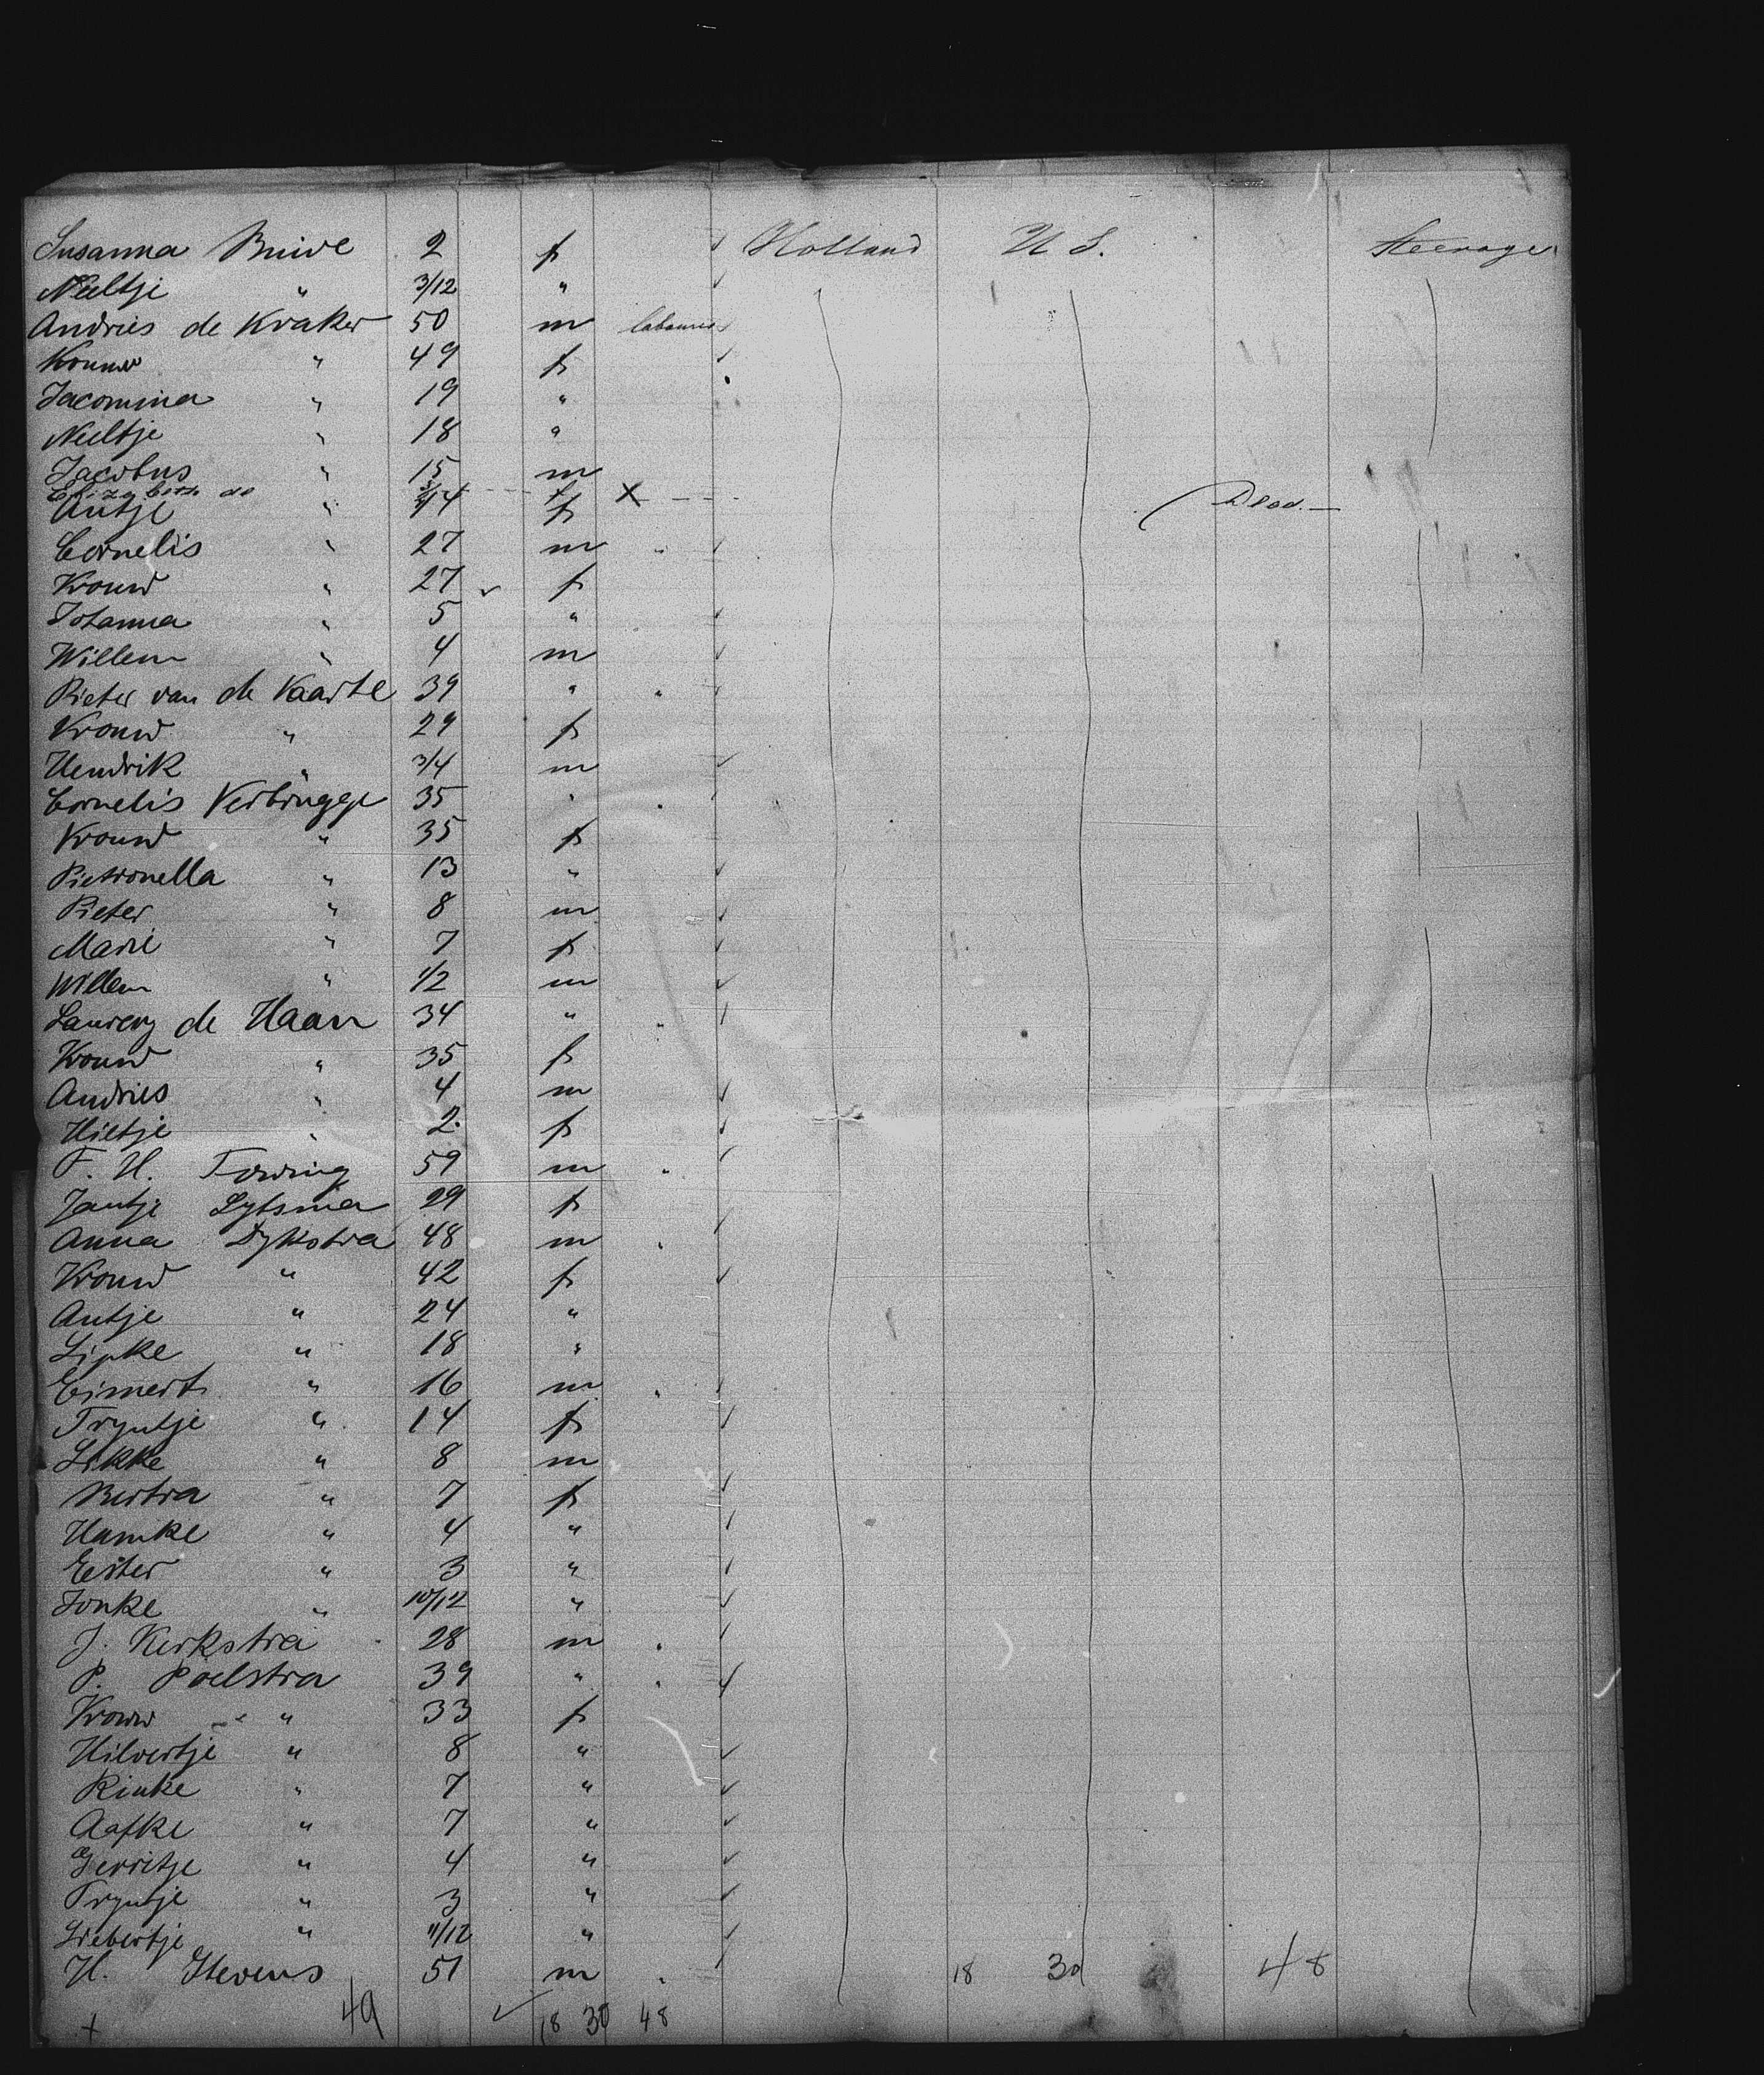 Susanna Bruive 2 f Holland U S. Steerage
Neeltje " 3/12 "
Andries de Kraker 50 m labourer
Vrouw " 49 f
Jacomina " 19 "
Neeltje " 18 "
Jacobus " 15 m
Elizabeth do f X Dead.
Antje " f
Cornelis " 27 m "
Vrouw " 27 f
Johanna " 5 "
Willem " 4 m
Pieter van de Vaarte 39 " "
Vrouw " 29 f
Hendrik " 3/4 m
Cornelis Verbrugge 35 " "
Vrouw " 35 f
Pietronella " 13 "
Pieter " 8 m
Marie " 7 f
Willem " 1/2 m
de Haan 34 " "
Vrouw " 35 f
Andries " 4 m
Hiltje " 2 f
F. H. 59 m "
Jantje Lytsma 29 f
Anna Dykstra 48 m "
Vrouw " 42 f
Antje " 24 "
Lipke " 18 "
Eimert " 16 m "
Tryntje " 14 f
Sikke " 8 m
Bertra " 7 f
Hamke " 4 "
Eester " 3 "
Jonke " 10/12 "
J. Kerkstra 28 m "
P. Poelstra 39 " "
Vrouw " 33 f
Hilvertje " 8 "
Rinke " 7 "
Aafke " 7 "
Gerritje " 4 "
Tryntje " 3 "
Siebertje " 11/12 "
H. Stevens 51 m " 18 30 48
+ 49 18 30 48